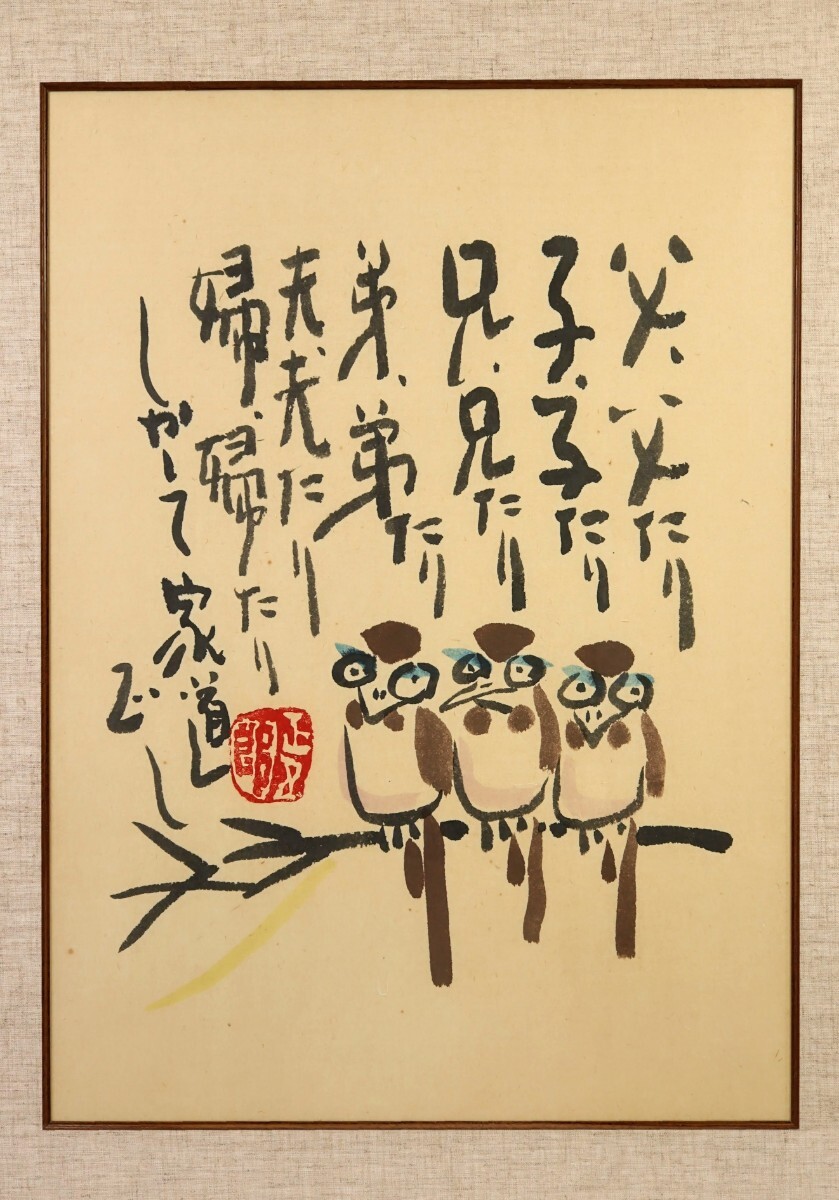 父、父たり
子、子たり
兄、兄たり
弟、弟たり
夫、夫たり
婦、婦たり
しかして家道
正し